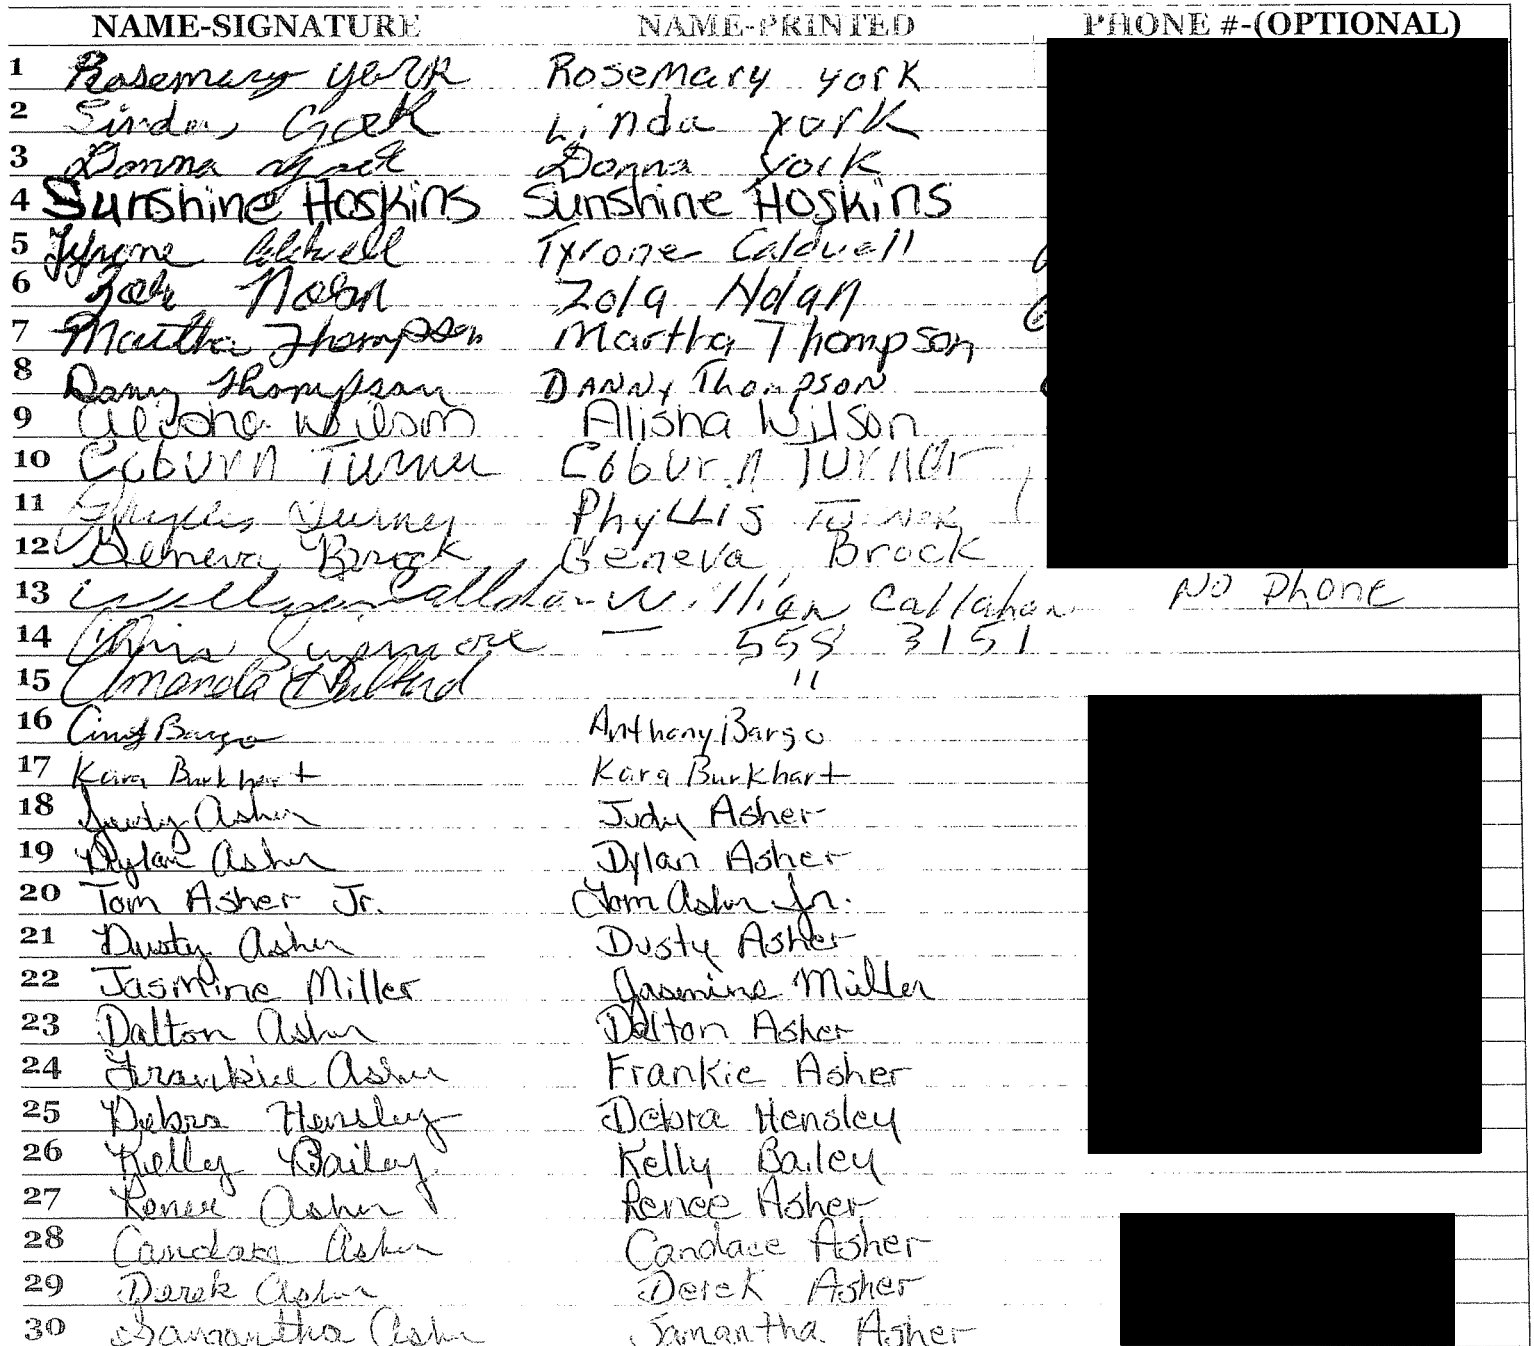 NAME-SIGNATURE NAME-PRINTED PHONE #-(OPTIONAL)
1 Rosemary York Rosemary York
2 Linda York Linda York
3 Donna York Donna York
4 Sunshine Hoskins Sunshine Hoskins
5 Tyrone Caldwell Tyrone Caldwell
6 Zola Nolan Zola Nolan
7 Martha Thompson Martha Thompson
8 Danny Thompson DANNY Thompson
9 Alisha Wilson Alisha Wilson
10 Coburn Turner Coburn Turner
11 Phyllis Turner Phyllis Turner
12 Geneva Brock Geneva Brock
13 William Callahan William Callahan NO Phone
14 Chris Sizemore — 558 3151
15 Amanda "
16 Bargo Anthony Bargo
17 Kara Burkhart Kara Burkhart
18 Judy Asher Judy Asher
19 Dylan Asher Dylan Asher
20 Tom Asher Jr. Tom Asher Jr.
21 Dusty Asher Dusty Asher
22 Jasmine Miller Jasmine Miller
23 Dalton Asher Dalton Asher
24 Frankie Asher Frankie Asher
25 Debra Hensley Debra Hensley
26 Kelly Bailey Kelly Bailey
27 Renee Asher Renee Asher
28 Candace Asher Candace Asher
29 Derek Asher Derek Asher
30 Samantha Asher Samantha Asher